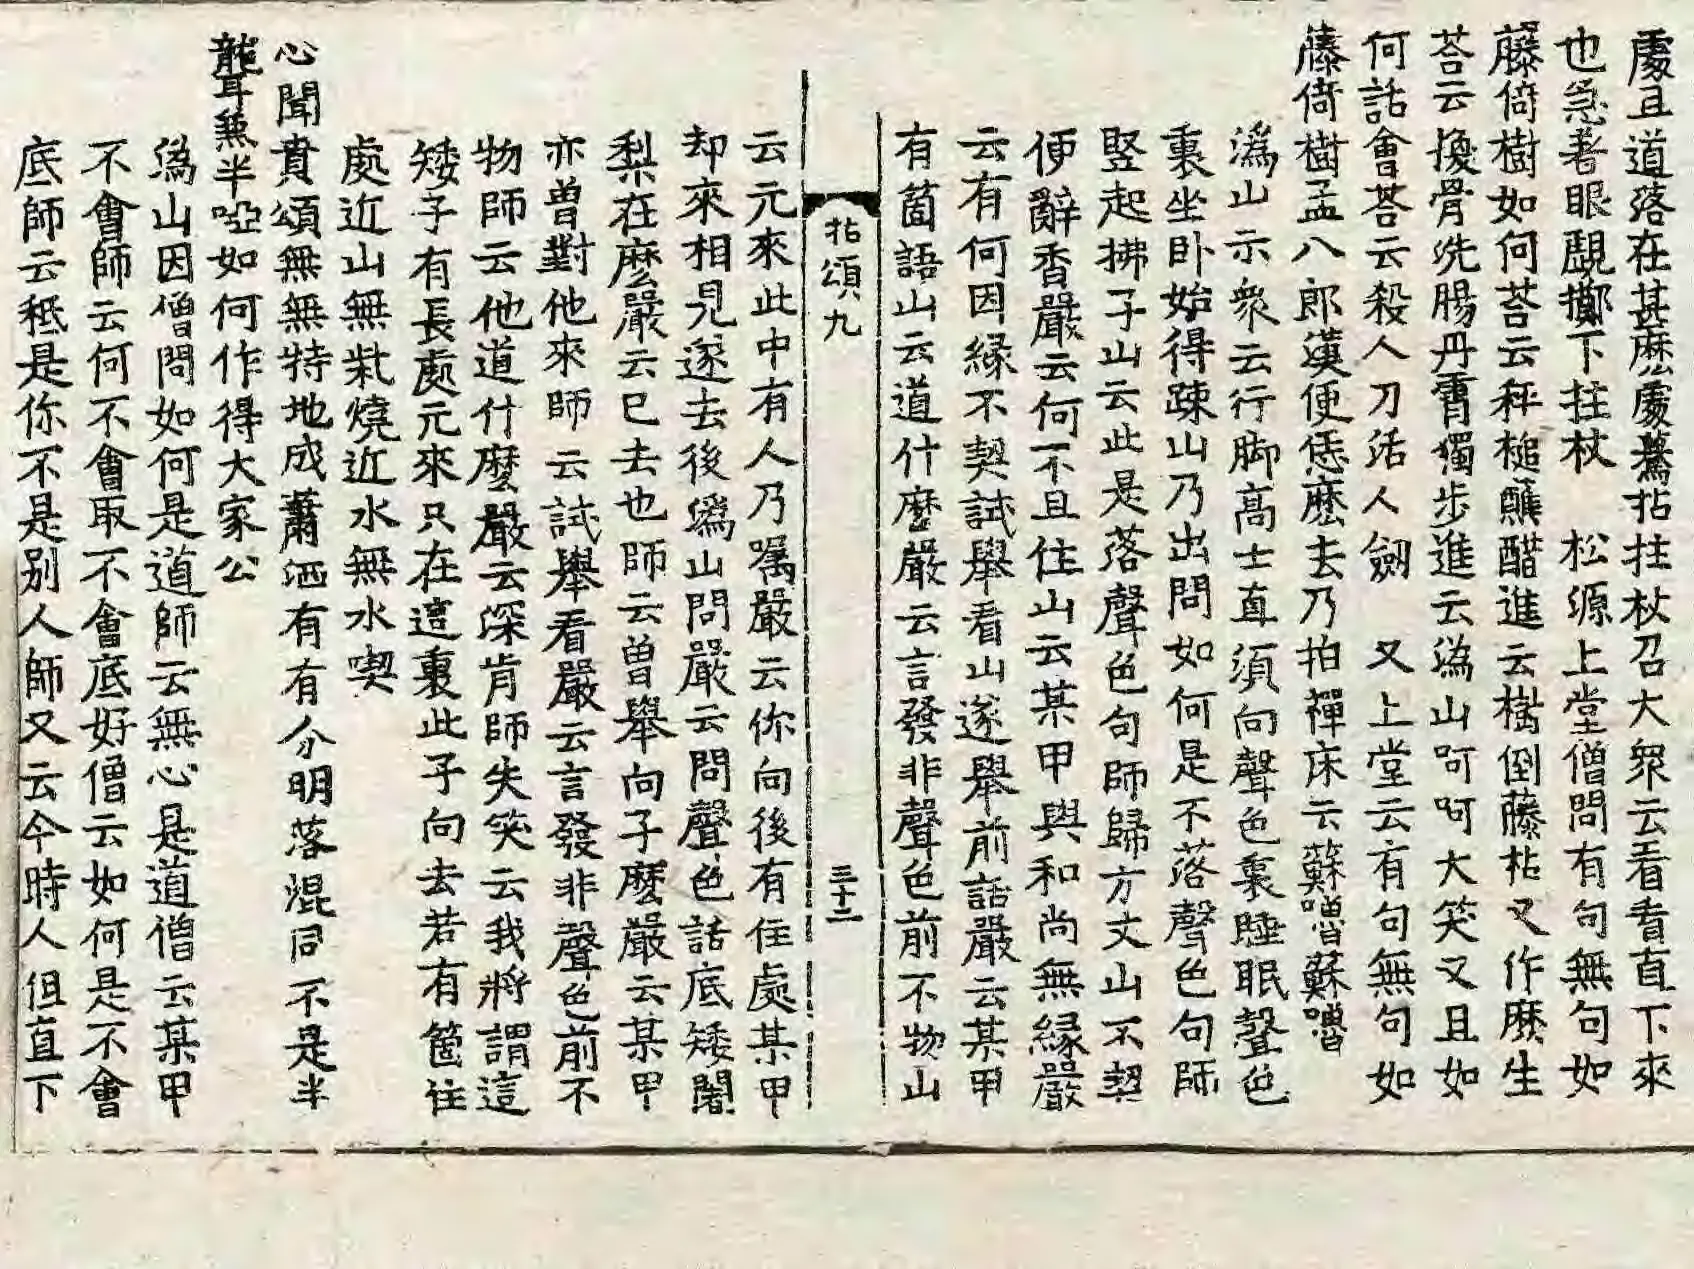 處且道落在甚麽處驀拈拄杖召大衆云看看直下來
也急著眼覰擲下拄杖 松源上堂僧問有句無句如
藤倚樹如何荅云秤槌蘸醋進云樹倒藤枯又作麽生
荅云換骨洗膓丹霄獨步進云潙山呵呵大笑又且如
何話會荅云殺人刀活人劒 又上堂云有句無句如
藤倚樹孟八郎漢便恁麽去乃拍禪床云蘇嚕蘇嚕
潙山示衆云行脚高士直須向聲色裏睡眠聲色
裏坐卧始得踈山乃出問如何是不落聲色句師
竪起拂子山云此是落聲色句師歸方丈山不契
便辭香嚴云何不且住山云某甲與和尚無緣嚴
云有何因緣不契試擧看山遂擧前話嚴云某甲
有箇語山云道什麽嚴云言發非聲色前不物山
拈頌九
三十二
云元來此中有人乃囑嚴云你向後有住處某甲
却來相見遂去後潙山問嚴云問聲色話底矮闍
梨在麽嚴云已去也師云曽擧向子麽嚴云某甲
亦曽對他來師云試擧看嚴云言發非聲色前不
物師云他道什麽嚴云深肯師失笑云我將謂這
矮子有長處元來只在這裏此子向去若有箇住
處近山無柴燒近水無水喫
心聞賁頌無無特地成蕭洒有有分明落混同不是半
聾兼半啞如何作得大家公
潙山因僧問如何是道師云無心是道僧云某甲
不會師云何不會取不會底好僧云如何是不會
底師云秪是你不是别人師又云今時人但直下